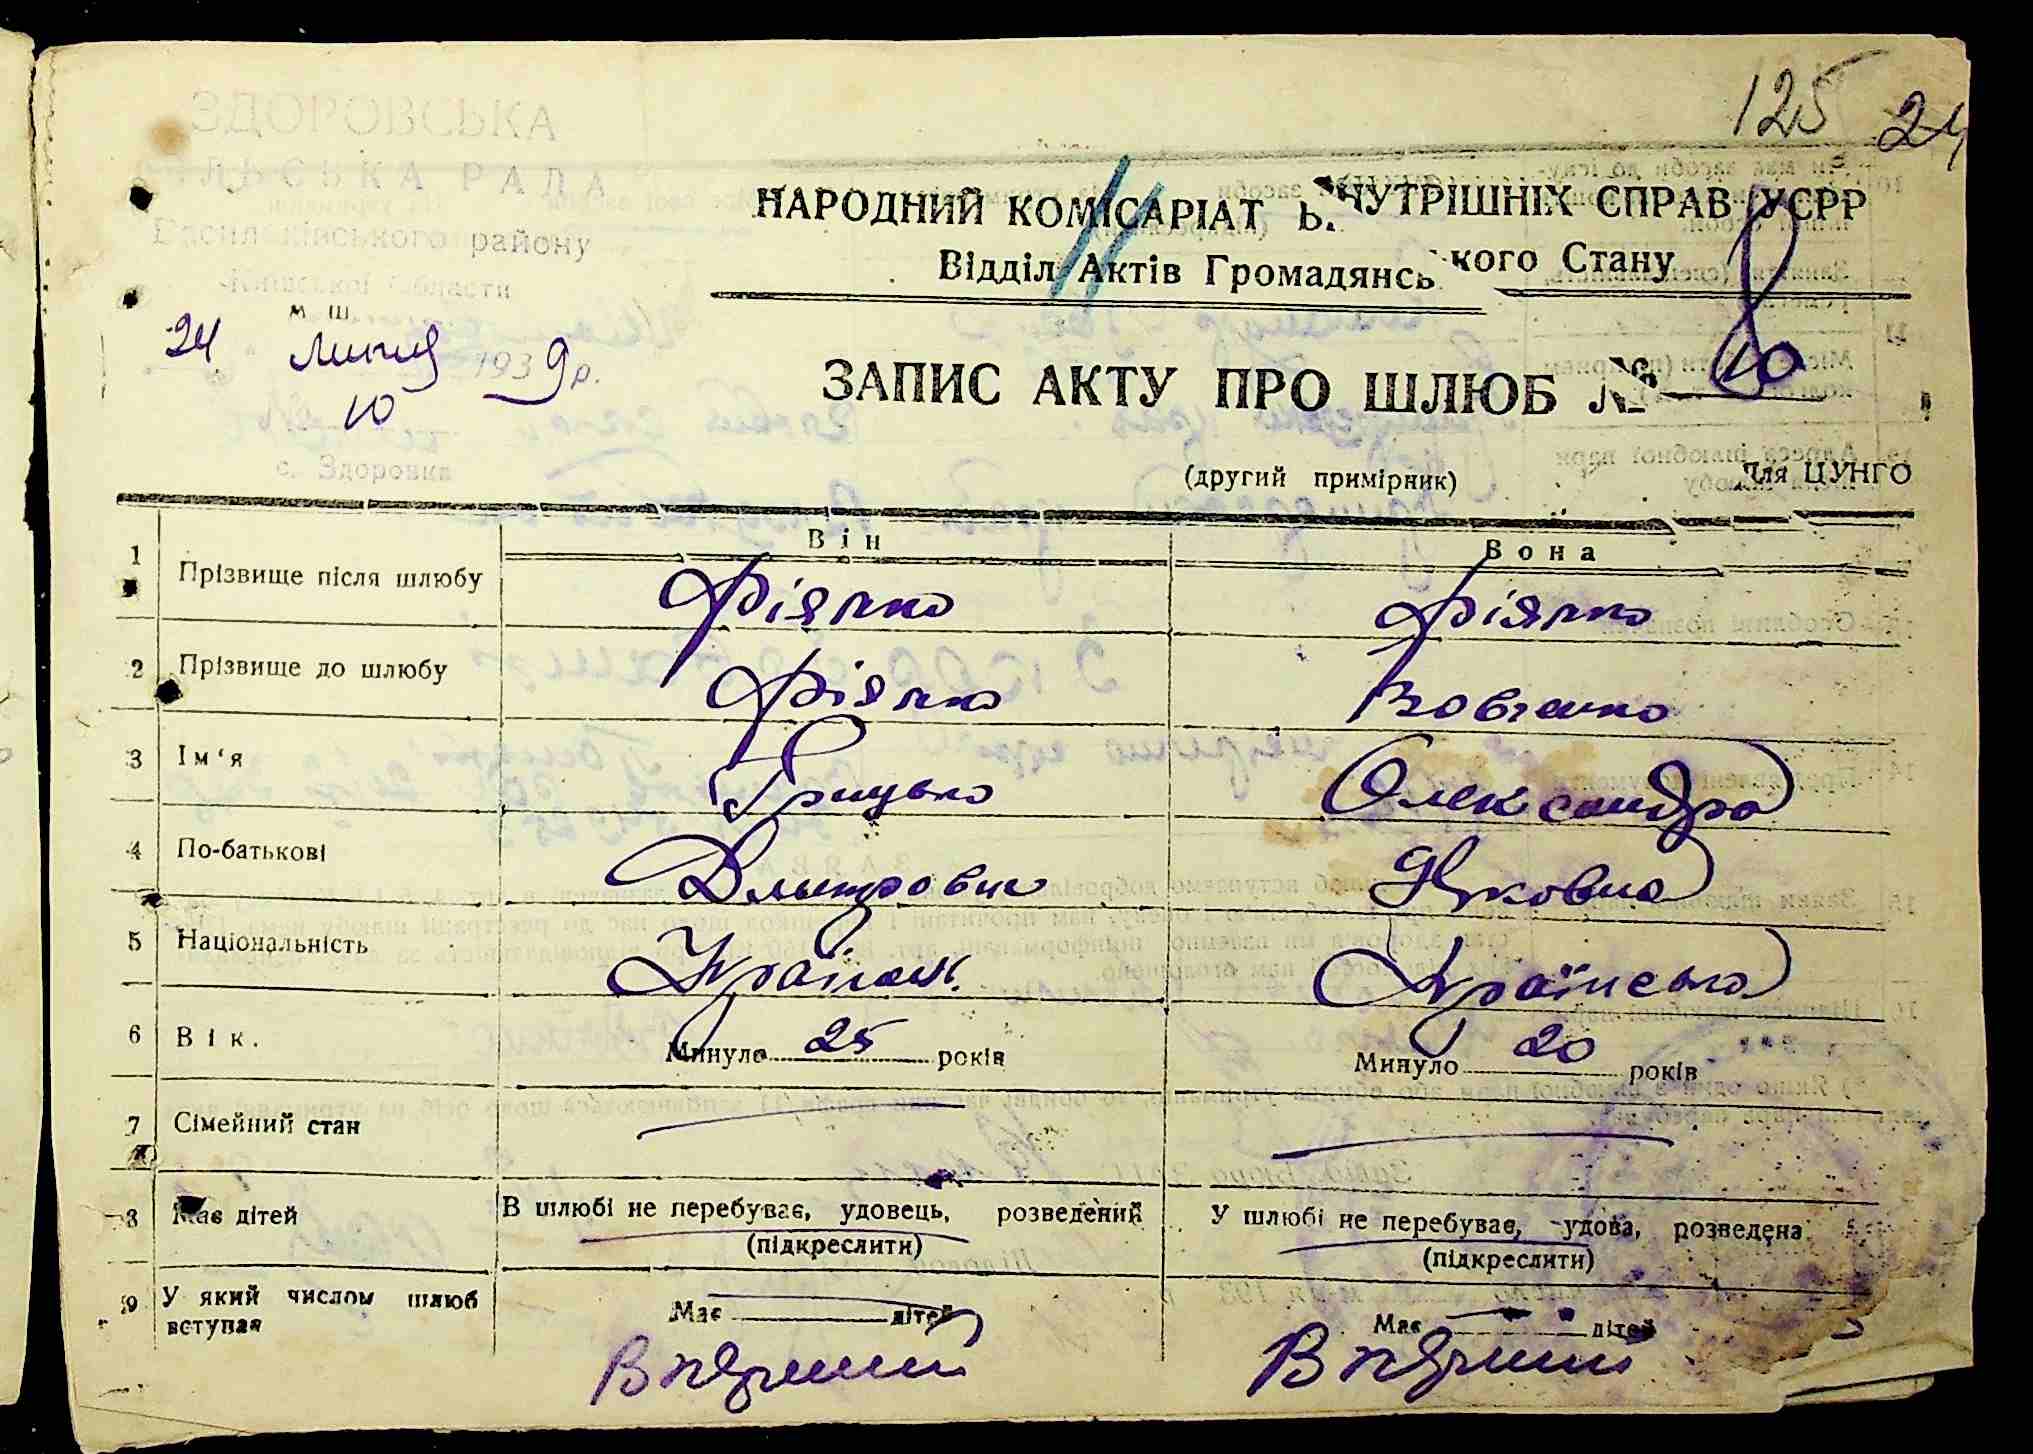 125 24
ЗДОРОВСЬКА
СІЛЬСЬКА РАДА
Васильківського району
Київської області
НАРОДНИЙ КОМІСАРІАТ ВНУТРІШНІХ СПРАВ УСРР
Відділ Актів Громадянського Стану
м. ш.
24 липня 1939 р.
10
с. Здоровка
ЗАПИС АКТУ ПРО ШЛЮБ № 10
(другий примірник) Для ЦУНГО
Він Вона
1 Прізвище після шлюбу Фіялко Фіялко
2 Прізвище до шлюбу Фіялко Вовченко
3 Ім'я Грицько Олександра
4 По-батькові Дмитрович Яковна
5 Національність Українець Українська
6 Вік. Минуло 25 років Минуло 20 років
7 Сімейний стан
8 Має дітей В шлюбі не перебуває, удовець, розведений У шлюбі не перебуває, удова, розведена
(підкреслити) (підкреслити)
9 У який числом шлюб вступає Має дітей Має дітей
В перший В перший